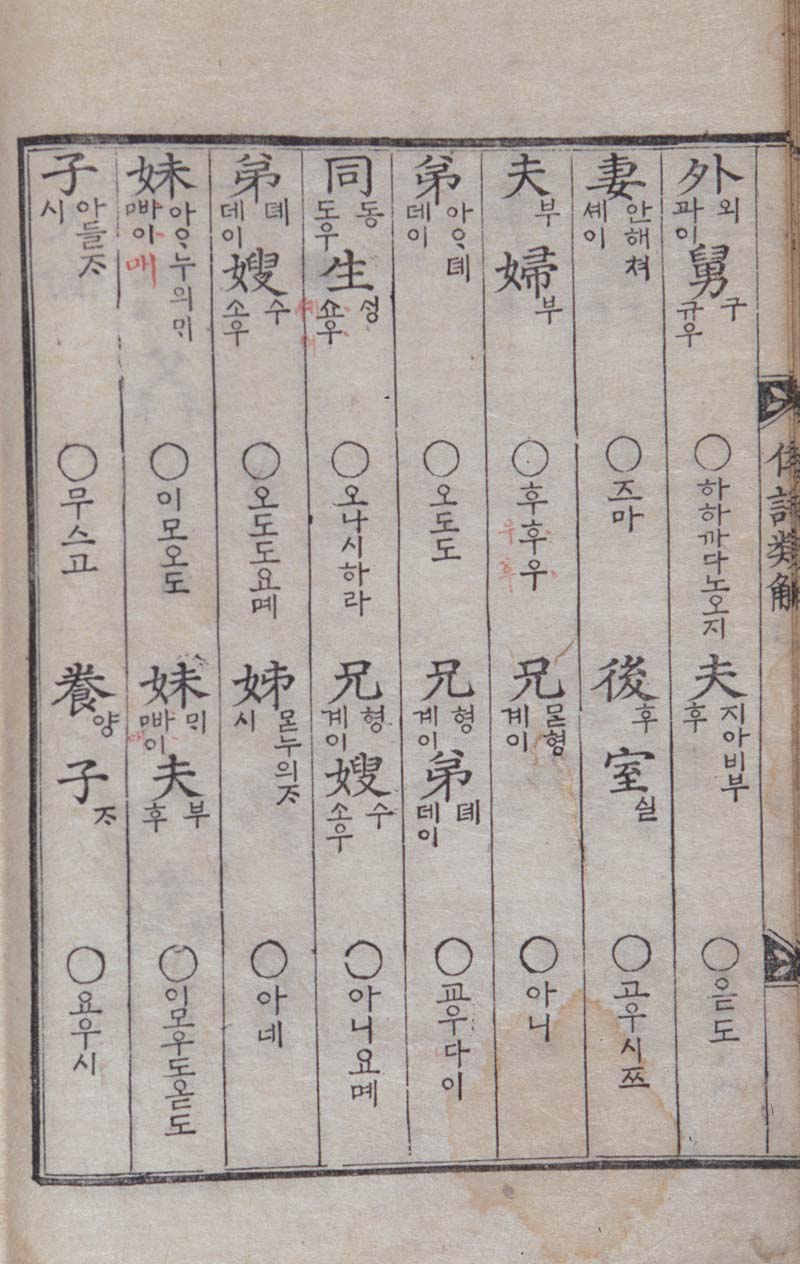 倭語類解
外 외 과이 舅 구 규우 ○하하까다노오지 夫 지아비부 후 ○옫도
妻 안해쳐 셰이 ○즈마 後 후 室 실 ○고우시쯔
夫 부 婦 부 ○후후우 우후 兄 몯형 계이 ○아니
弟 아ᄋᆞ뎨 데이 ○오도도 兄 형 계이 弟 뎨 데이 ○교우다이
同 동 도우 生 ᄉᆡᆼ 쇼우 ○오나시하라 兄 형 계이 嫂 수 소우 ○아니요몌
弟 뎨 데이 嫂 수 소우 ○오도도요몌 姉 몯누의ᄌᆞ 시 ○아네
妹 아ᄋᆞ누의ᄆᆡ ꥱᅡ이 매 ○이모오도 妹 ᄆᆡ ꥱᅡ이 夫 부 후 ○이모우도옫도
子 아들ᄌᆞ 시 ○무스고 養 양 子 ᄌᆞ ○요우시